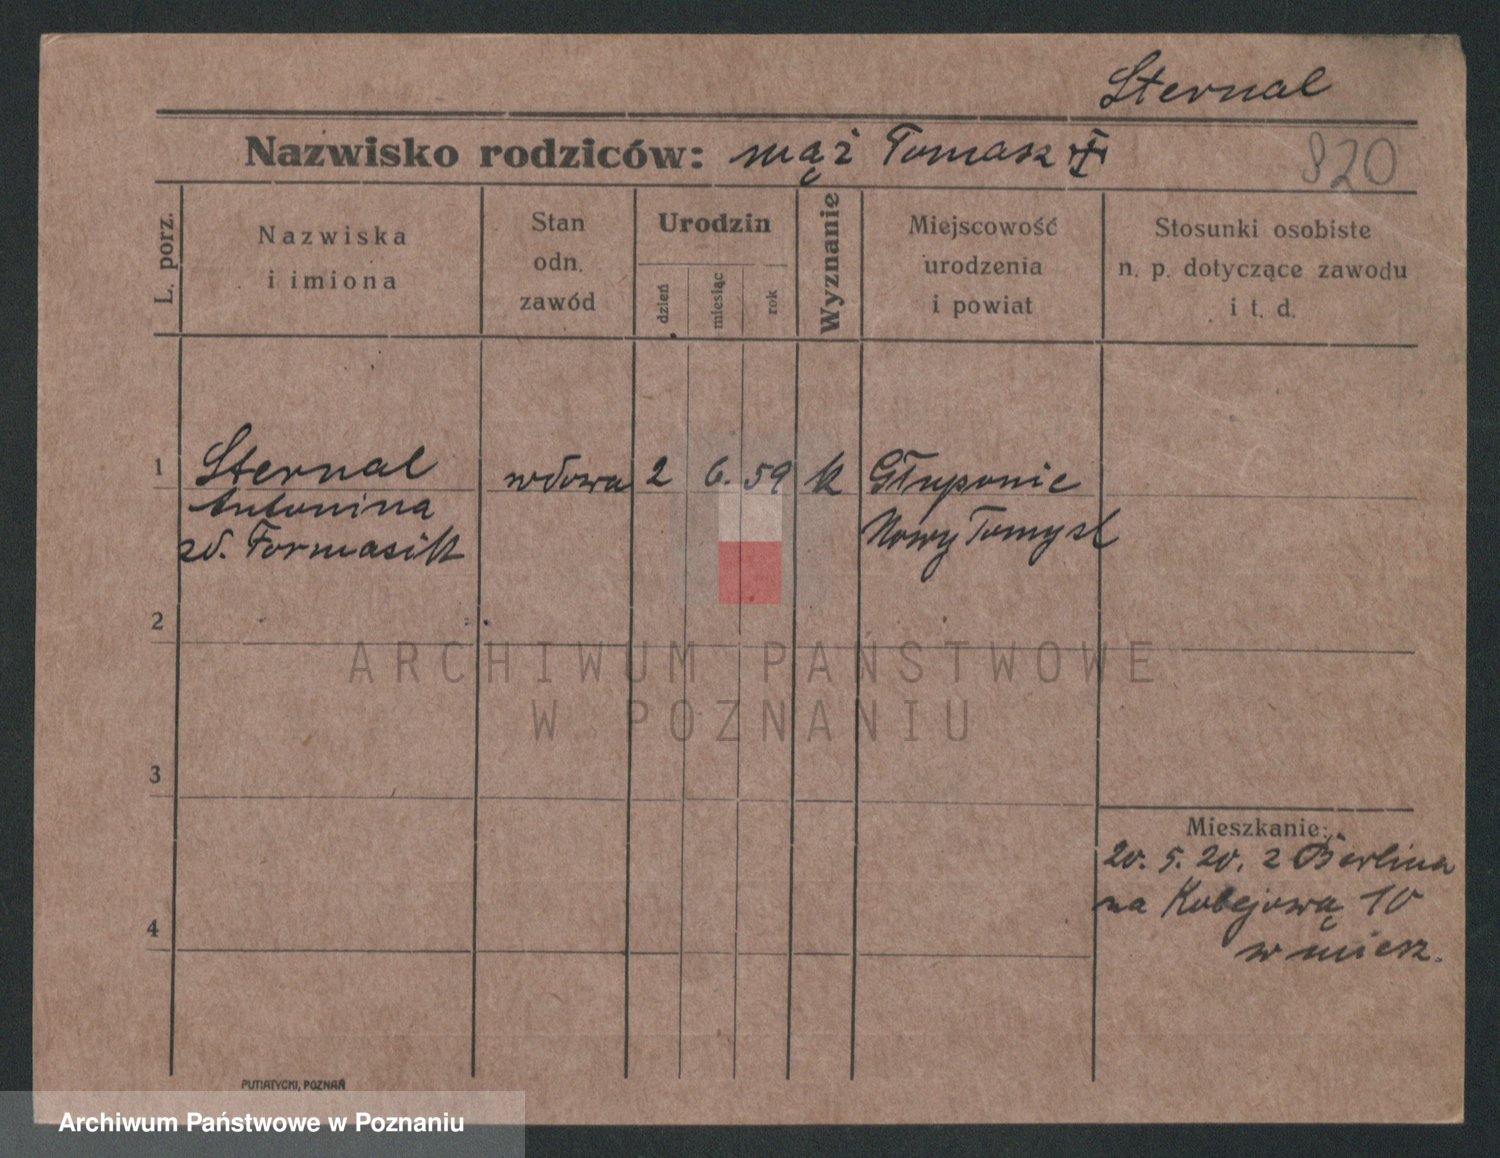 Sternal
Nazwisko rodziców: mąż Tomasz
820
L. porz.
Nazwiska
i imiona
Stan
odn.
zawód
Urodzin
dzień
miesiąc
rok
Wyznanie
Miejscowość
urodzenia
i powiat
Stosunki osobiste
n. p. dotyczące zawodu
i t. d.
1
Sternal
Antonina
zd. Formasik
wdowa
2
6.
59
k
Głuponie
Nowy Tomysl
2
3
4
Mieszkanie:
20. 5. 20. z Berlina
na Kolejową 10
w miesz.
ARCHIWUM PAŃSTWOWE
W POZNANIU
PUTIATYCKI, POZNAŃ
Archiwum Państwowe w Poznaniu